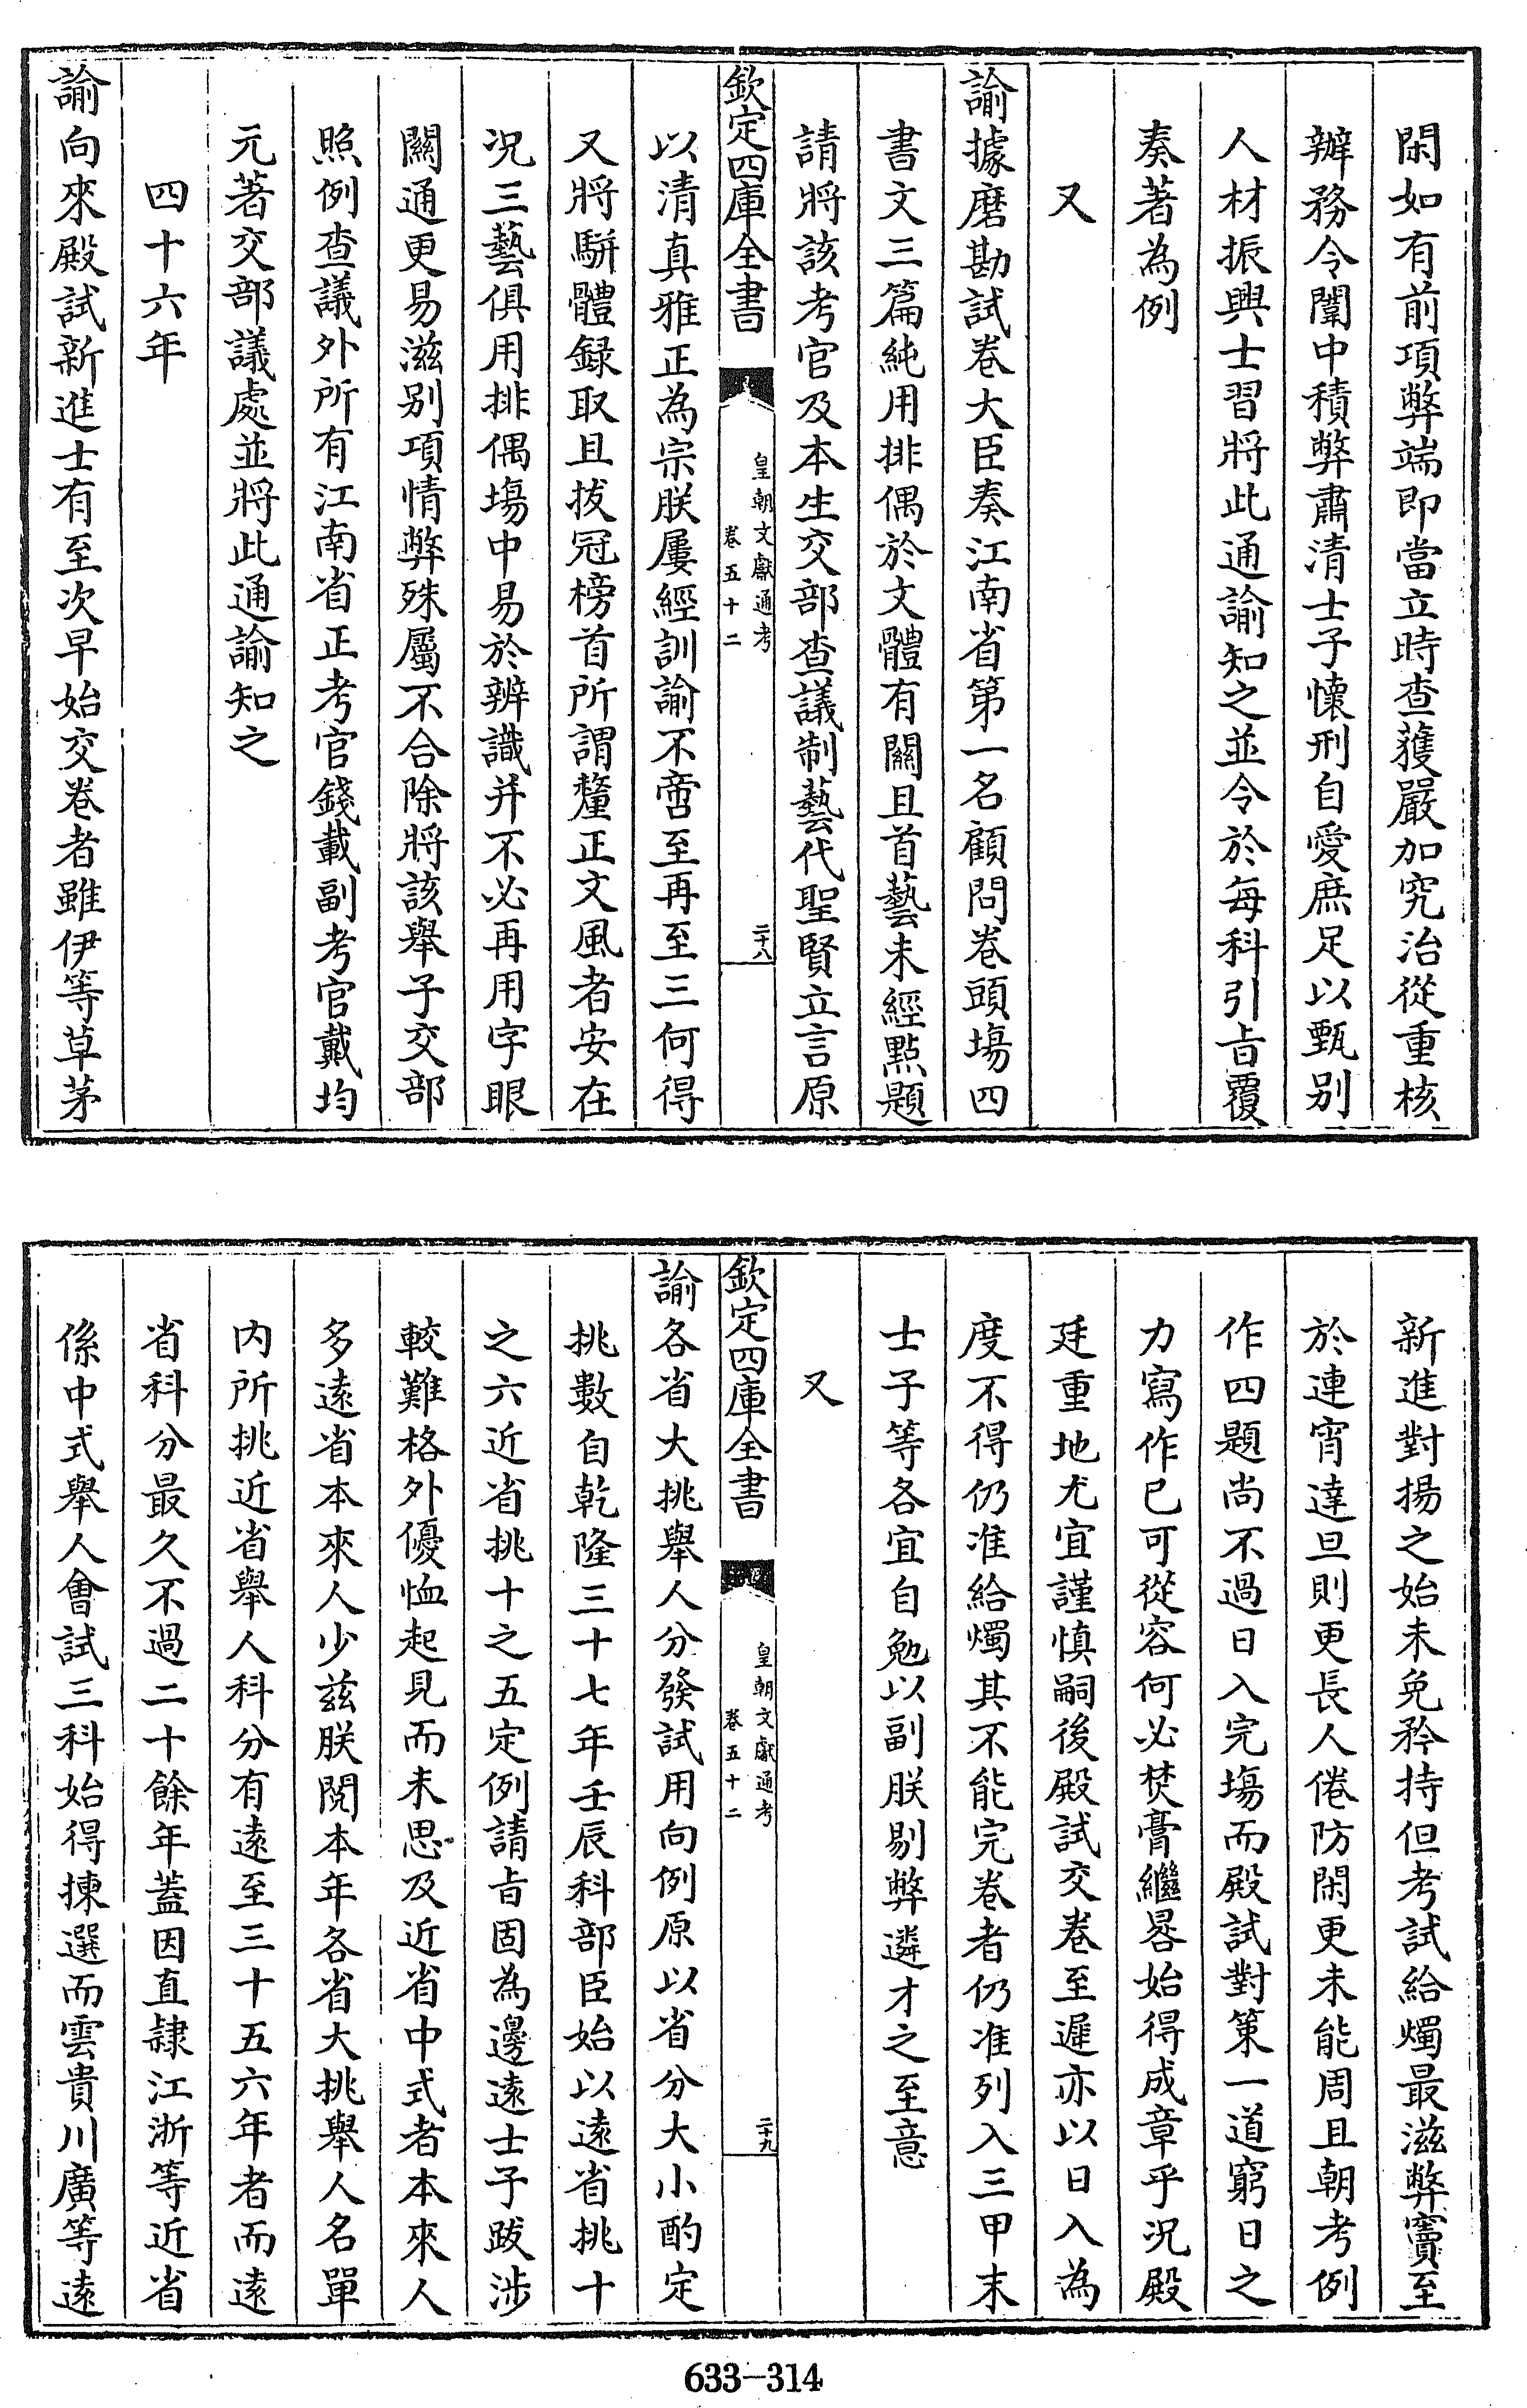 閑如有前項弊端即當立時查蒦嚴加究治從重核
辦務令闈中積弊肅清士子懷刑自愛庶足以甄别
人材振興士習將此通諭知之並令於每科引㫖覆
奏著為例
又
諭據磨勘試卷大臣奏江南省第一名顧問卷頭塲四
書文三篇純用排偶於文體有關且首藝未經點題
請將該考官及本生交部查議制藝代聖賢立言原
欽定四庫全書
皇朝文獻通考
卷五十二
二十八
以清真雅正為宗朕屢經訓諭不啻至再至三何得
又將駢體録取且拔冠榜首所謂釐正文風者安在
况三藝俱用排偶塲中易於辨識并不必再用字眼
關通更易滋别項情弊殊屬不合除將該舉子交部
照例查議外所有江南省正考官錢載副考官戴均
元著交部議處並將此通諭知之
四十六年
諭向來殿試新進士有至次早始交卷者雖伊等草茅
新進對揚之始未免矜持但考試給燭最滋弊竇至
於連宵達旦則更長人倦防閑更未能周且朝考例
作四題尚不過日入完塲而殿試對策一道窮日之
力寫作已可從容何必焚膏繼晷始得成章乎况殿
廷重地尤宜謹慎嗣後殿試交卷至遲亦以日入為
度不得仍准給燭其不能完卷者仍准列入三甲末
士子等各宜自勉以副朕剔弊遴才之至意
又
欽定四庫全書
皇朝文獻通考
卷五十二
二十九
諭各省大挑舉人分發試用向例原以省分大小酌定
挑數自乾隆三十七年壬辰科部臣始以逺省挑十
之六近省挑十之五定例請㫖固為邊逺士子跋涉
較難格外優恤起見而未思及近省中式者本來人
多逺省本來人少兹朕閱本年各省大挑舉人名單
内所挑近省舉人科分有逺至三十五六年者而逺
省科分最久不過二十餘年蓋因直隸江浙等近省
係中式舉人會試三科始得揀選而雲貴川廣等逺
633-314